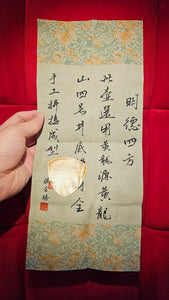 明德四方
此壶選用黄龍源黄龍
山四号井底 全
手工拼接成型